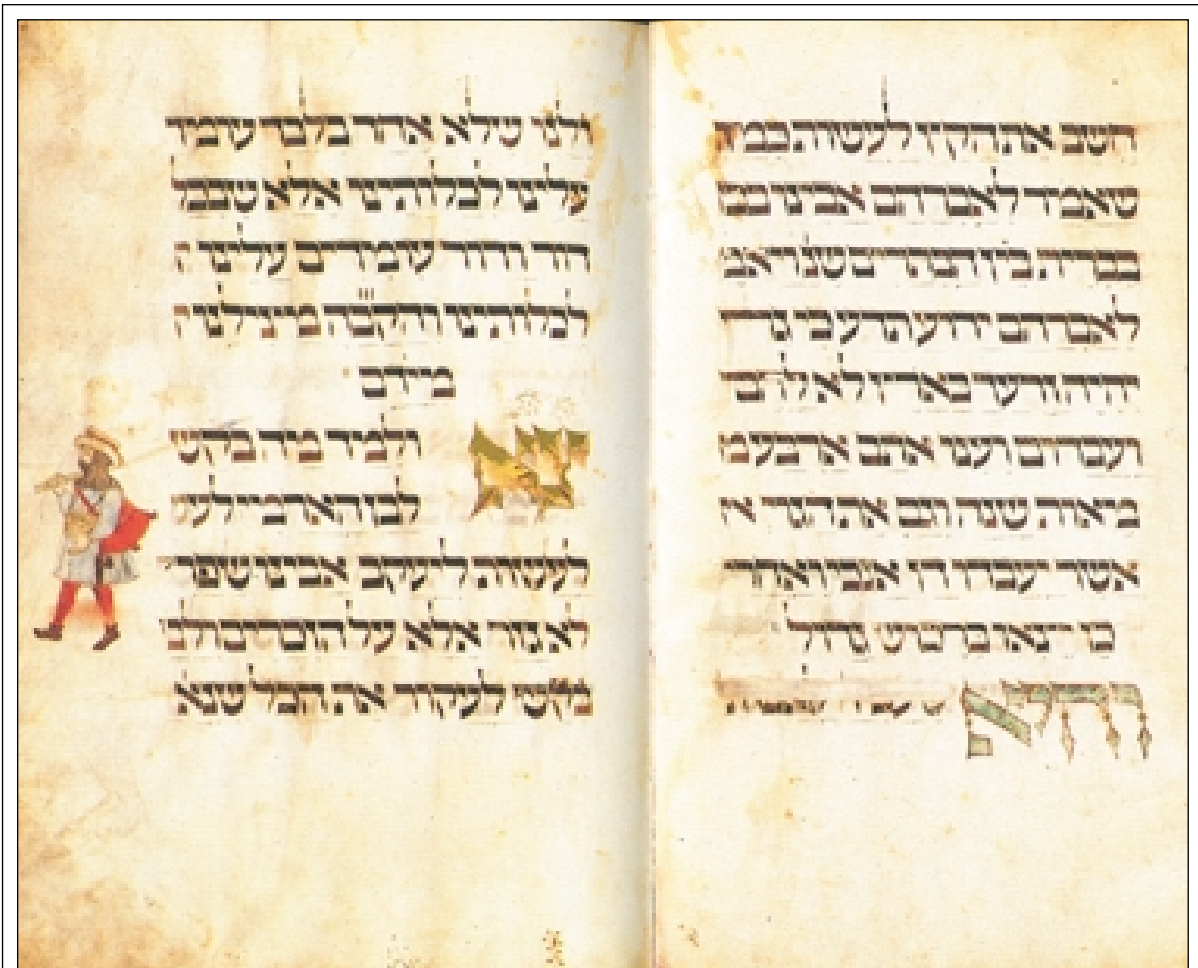 חשב את הקץ לעשות כמה
שאמר לאברהם אבינו
בברית בין הבתרים שנ ויאמ
לאברהם ידוע תדע כי גר
יהיה זרעך בארץ לא להם
ועבדום וענו אתם ארבע מ
מאות שנה וגם את הגוי א
אשר יעבדו דן אנכי ואחרי
כן יצאו ברכוש גדול
והיא
ולנו שלא אחד בלבד עומד
עלינו לכלותינו אלא שבכל
דור ודור עומדים עלינו
לכלותינו והקבה מצילנו
מידם
צא ולמד מה בקש
לבן הארמי לע
לעשות ליעקב אבינו שפר
לא גזר אלא על הזכרים ולב
בקש לעקור את הכל שנא